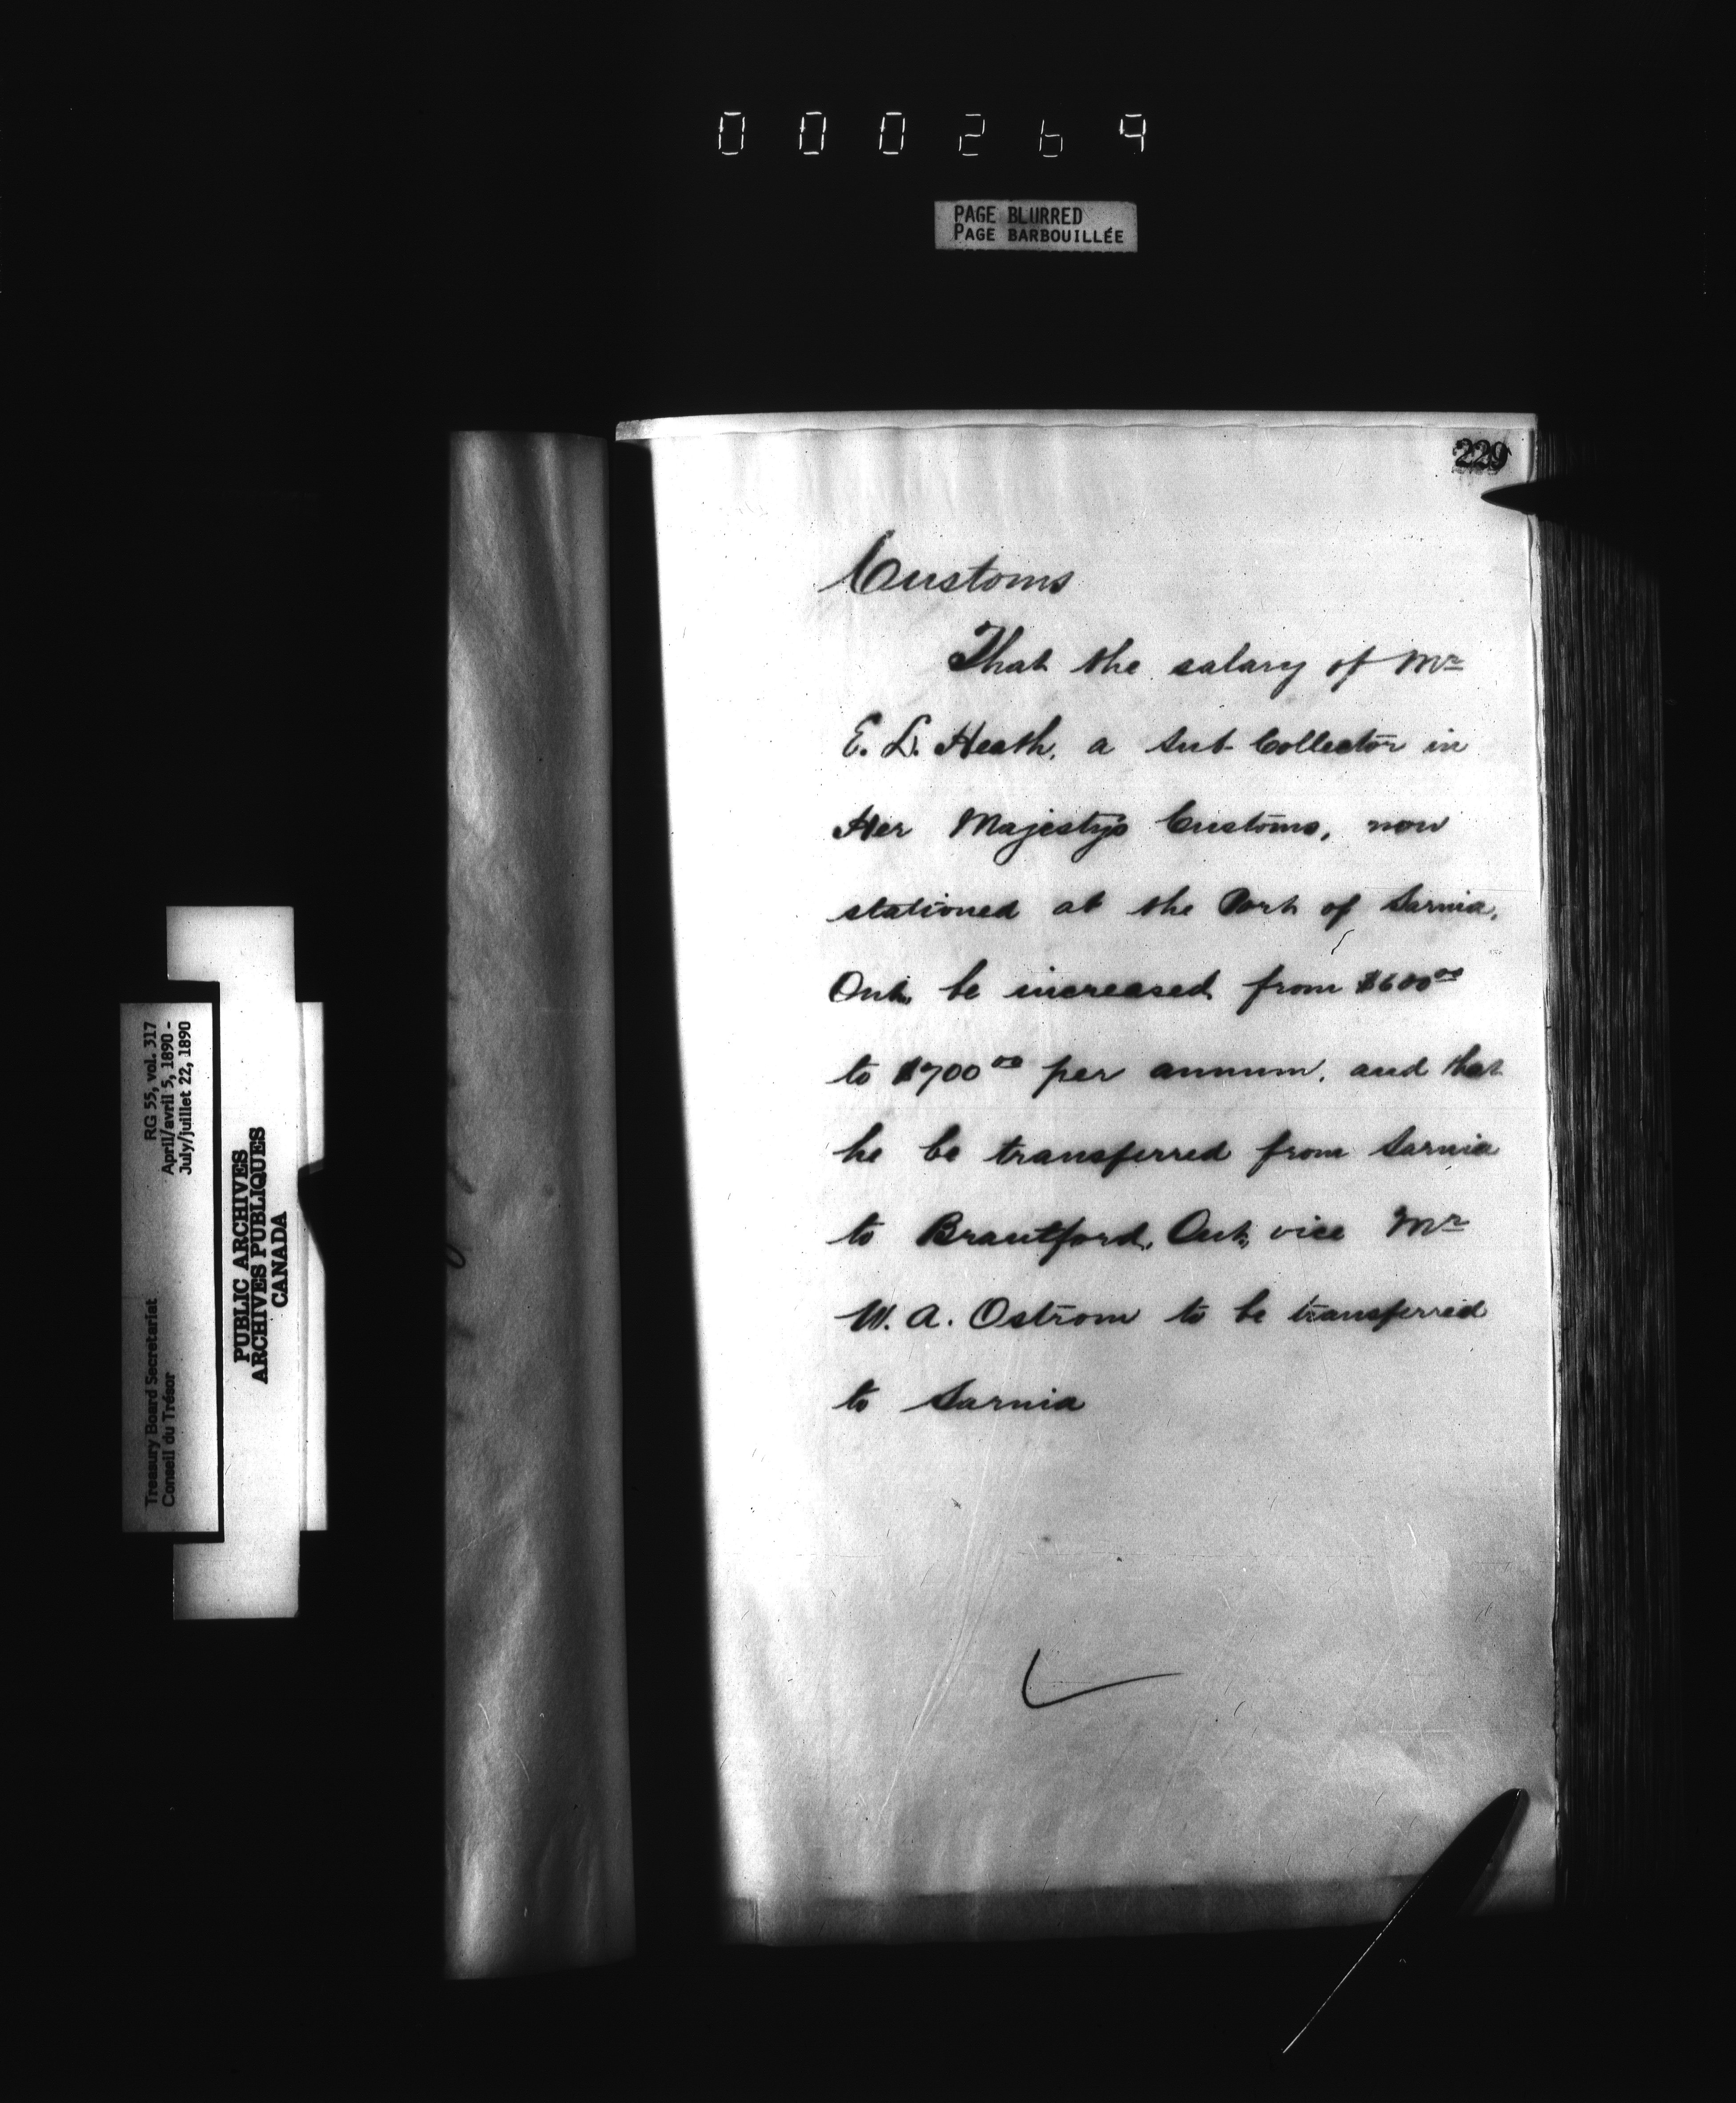 000264
PAGE BLURRED
PAGE BARBOUILLÉE
229
Customs
That the salary of Mr
E. L. Heath, a Sub-Collector in
Her Majesty's Customs, now
stationed at the Port of Sarnia,
Ont. be increased from $600 00
to $700 00 per annum, and that
he be transferred from Sarnia
to Brantford, Ont., vice Mr
W. A. Ostrom to be transferred
to Sarnia
RG 55, vol. 317
April/avril 5, 1890 -
July/juillet 22, 1890
Treasury Board Secretariat
Conseil du Trésor
PUBLIC ARCHIVES
ARCHIVES PUBLIQUES
CANADA